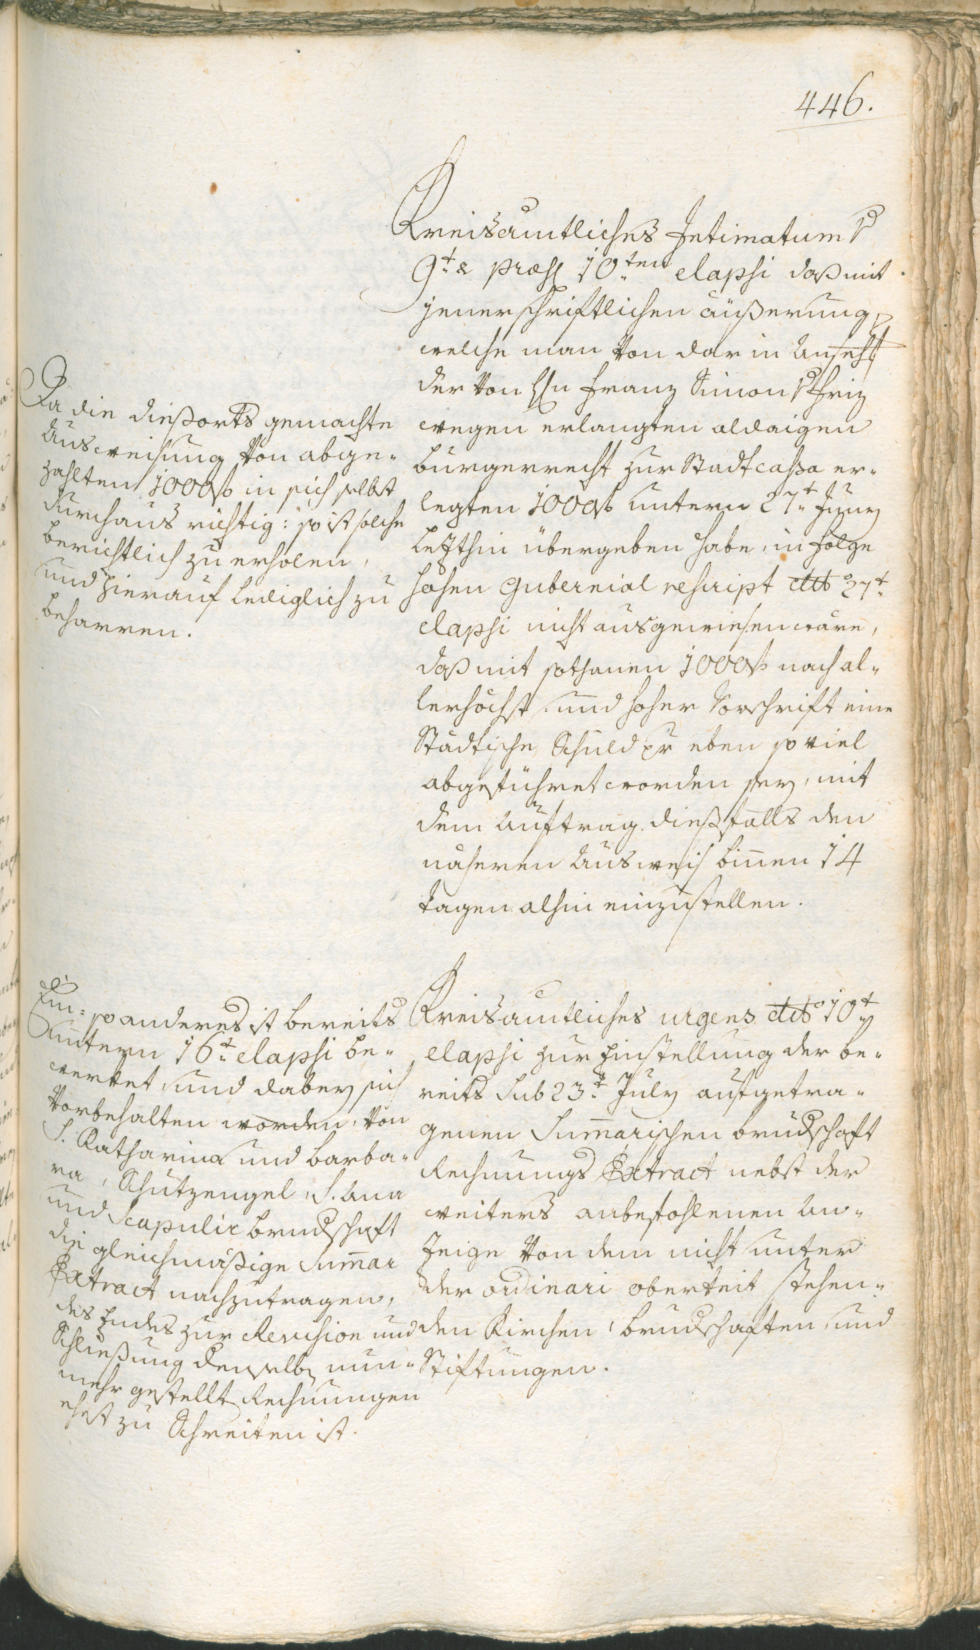 446.
Kreisamtliches Intimatum d
9t & præs 10ten elapsi daß mit
jener schriftlichen äüßerung,
welche man von dar in Ansehg
der von Hn Franz Simon
wegen erlangten aldaigen
burgerrecht zur Stadtcassa er-
legten 1000f untern 27t Juny
letzthin übergeben habe, in folge
hohen Gubernial rescript ddo 27t
elapsi nicht ausgewiesen wäre,
daß mit sothanen 1000f nach al-
lerhöchst und hoher Vorschrift eine
Städtische Schuld pr eben so viel
abgeführet worden sey, mit
dem Auftrag dießfalls den
näheren Ausweiß binnen 14
tagen alhin einzustellen.
Da die dießorts gemachte
Ausweisung von abge-
zahlten 1000f in sich selbst
durchaus richtig: so ist solche
berichtlich zu erholen,
und hierauf lediglich zu
beharren.
Kreisamtliches urgens ddo 10t
elapsi zur Einstellung der be-
reits sub 23t July aufgetra-
genen Sum̄arischen brudschaft
Rechnungs Extract nebst der
weiters anbefohlenen An-
zeige von dem nicht unter
der ordinari oberkeit stehen-
den Kirchen, brudschaften, und
Stiftungen.
Ein- so anderes ist bereits
untern 16t elapsi be-
wertet, und dabey sich
vorbehalten worden, von
S. Katharina und barba-
ra, Schutzengel, S. Ana
und Scapulir brudschaft
die gleichmäßige Sum̄ar
Extract nachzutragen,
des Endes zur Revision und
Schließung denselbn nun-
mehr gestellt Rechnungen
ehest zu Schreiten ist.